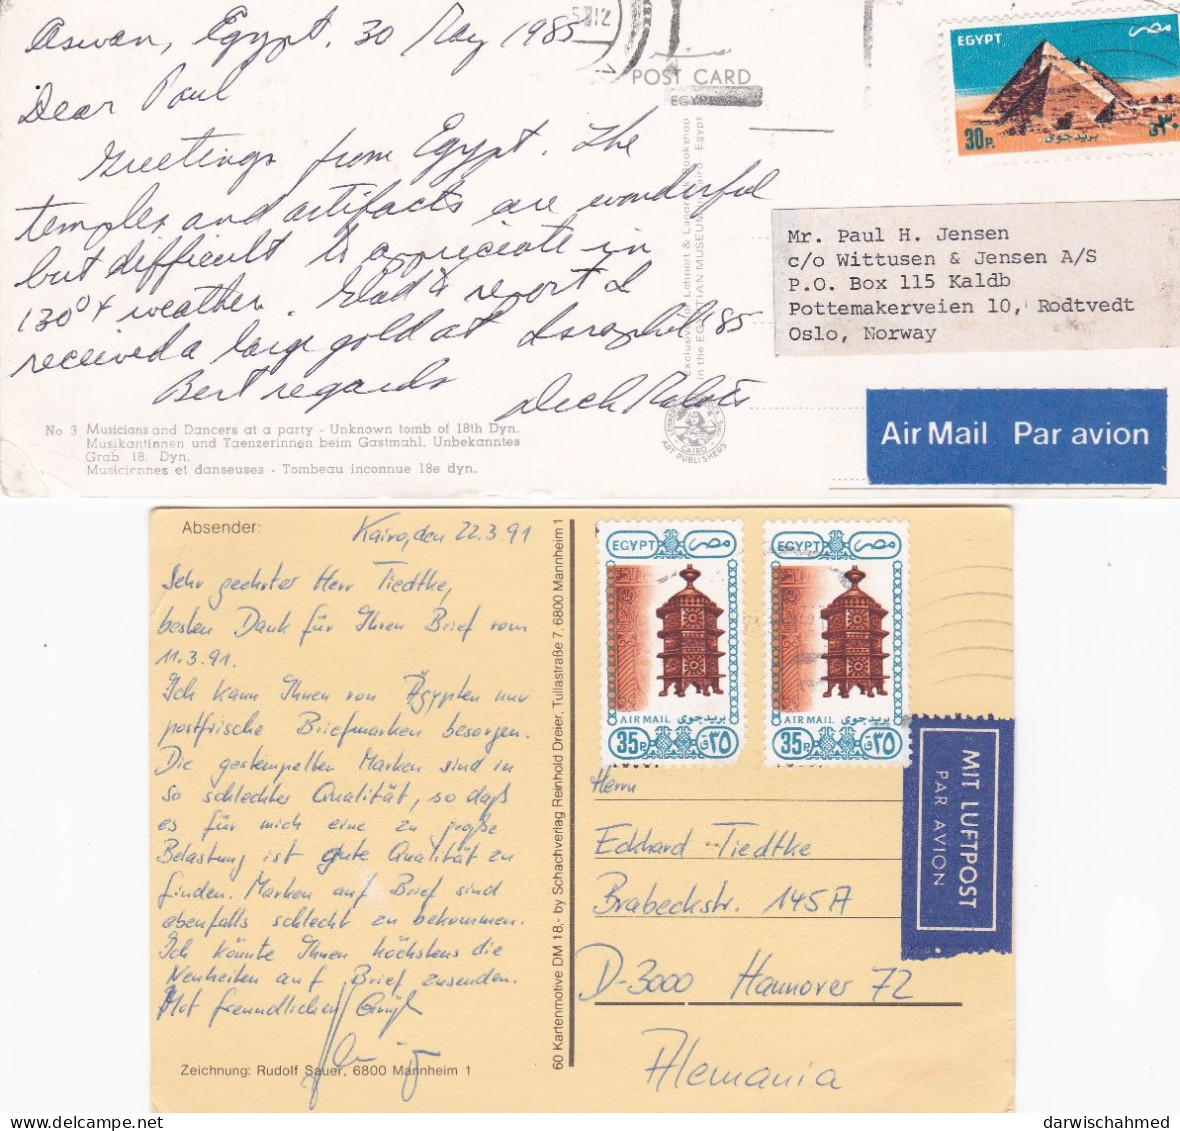 Aswan, Egypt. 30 May 1985
Dear Paul
Greetings from Egypt. The
temples and artifacts are wonderful
but difficult to appreciate in
130°+ weather. Glad to report I
received a large gold at Israphil 85
Best regards
Dick
No 3 Musicians and Dancers at a party - Unknown tomb of 18th Dyn.
Musikantinnen und Taenzerinnen beim Gastmahl. Unbekanntes
Grab 18. Dyn.
Musiciennes et danseuses - Tombeau inconnue 18e dyn.
POST CARD
EGYPT
Exclusive for Lehnert & Landrock Bookshop
in the EGYPTIAN MUSEUM Cairo - Egypt
CAIRO
ART PUBLISHERS
EGYPT مصر
30P. بريد جوى ٣٠ق
Mr. Paul H. Jensen
c/o Wittusen & Jensen A/S
P.O. Box 115 Kaldb
Pottemakerveien 10, Rodtvedt
Oslo, Norway
Air Mail Par avion
Absender:
Kairo, den 22.3.91
Sehr geehrter Herr Tiedtke,
besten Dank für Ihren Brief vom
11.3.91.
Ich kann Ihnen von Ägypten nur
postfrische Briefmarken besorgen.
Die gestempelten Marken sind in
so schlechter Qualität, so daß
es für mich eine zu große
Belastung ist gute Qualität zu
finden. Marken auf Brief sind
ebenfalls schlecht zu bekommen.
Ich könnte Ihnen höchstens die
Neuheiten auf Brief zusenden.
Mit freundlichen Grüßen
Zeichnung: Rudolf Sauer, 6800 Mannheim 1
60 Kartenmotive DM 18,- by Schachverlag Reinhold Dreier, Tullastraße 7, 6800 Mannheim 1
EGYPT مصر
AIR MAIL بريد جوى
35P. ٣٥ق
EGYPT مصر
AIR MAIL بريد جوى
35P. ٣٥ق
MIT LUFTPOST
PAR AVION
Herrn
Eckhard Tiedtke
Brabeckstr. 145A
D-3000 Hannover 72
Alemania
darwischahmed